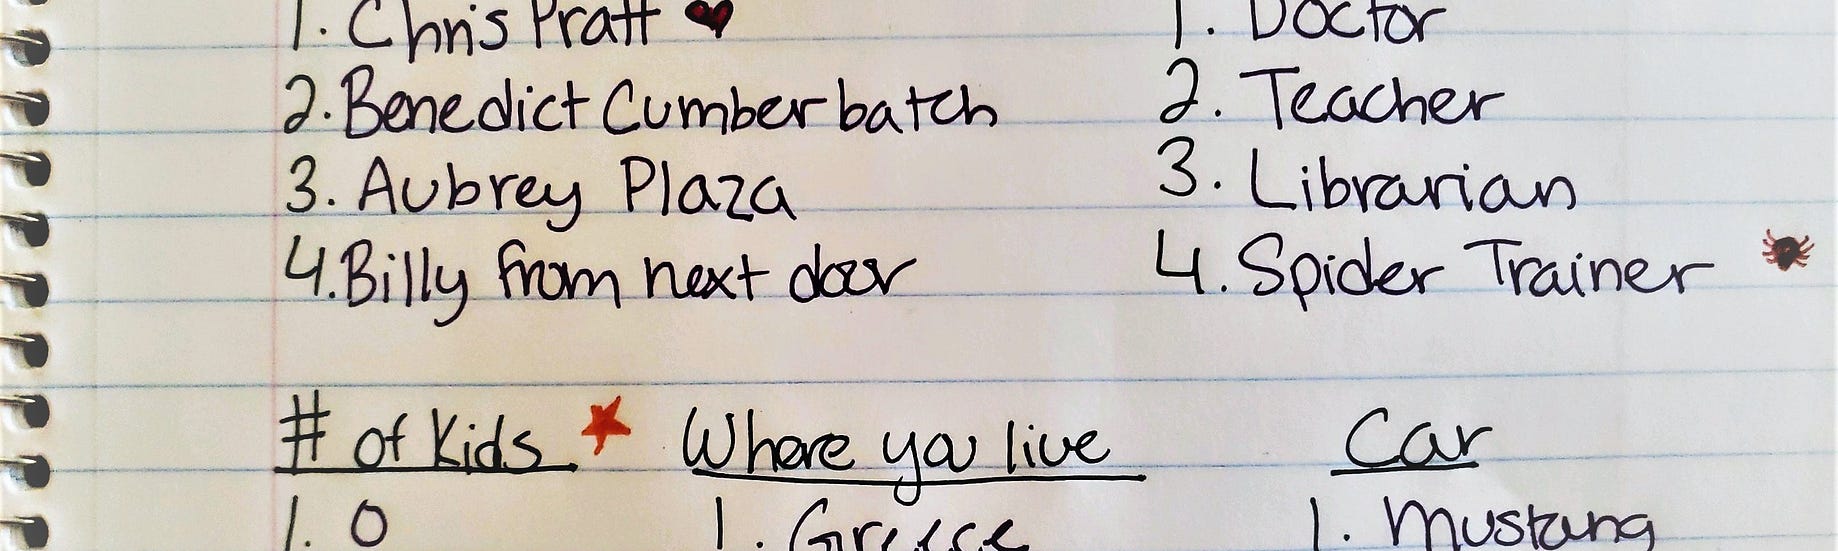 1. Chris Pratt 1. Doctor
2. Benedict Cumberbatch 2. Teacher
3. Aubrey Plaza 3. Librarian
4. Billy from next door 4. Spider Trainer
# of Kids Where you live Car
1. 0 1. Greece 1. Mustang